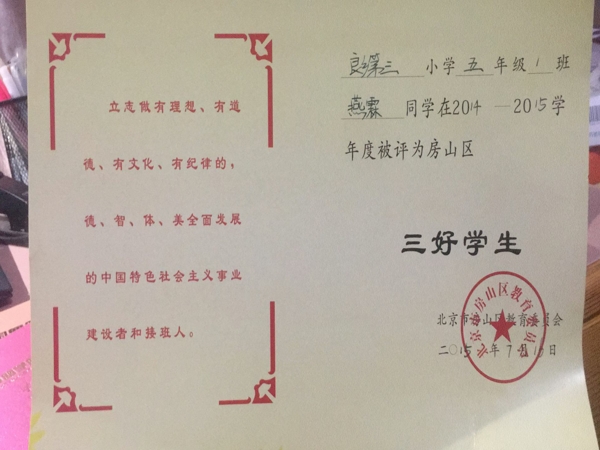 立志做有理想、有道
德、有文化、有纪律的，
德、智、体、美全面发展
的中国特色社会主义事业
建设者和接班人。
小学五年级1班
燕霖同学在2014—2015学
年度被评为房山区
三好学生
北京市房山区教育委员会
二〇15年7月10日
北京市房山区教育委员会